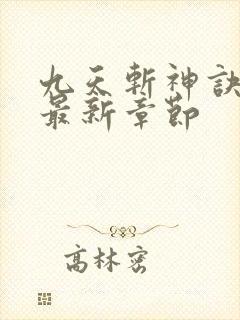 九天斬神訣
最新章節
高林密